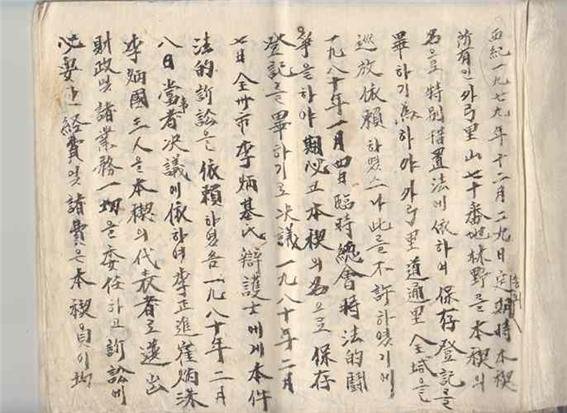 西紀一九七九年十二月二九日 定期時 本楔
所有인 外弓里 山七十番地 林野를 本楔의
名으로 特別措置法에 依하여 保存登記를
畢하기 爲하야 外弓里 道通里 全域을
巡放依賴하였으나 此를 不許하였기에
一九八十年一月四日 臨時總會時 法的鬪
爭을 하야 期必코 本楔의 名으로 保存
登記를 畢하기로 决議 一九八十年二月
七日 全州市 李炳基氏 辯護士에게 本件
法的訴訟을 依賴하였음 一九八十年二月
八日 當事者 决議에 依하여 李正進 崔炳洙
李炳國 三人을 本楔의 代表者로 選出
財政및 諸業務 一切을 委任하고 訴訟에
必要한 經費및 諸費은 本楔